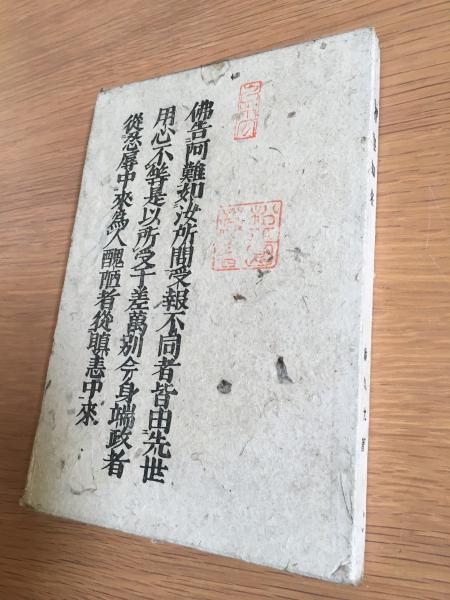 佛告阿難如汝所問受報不同者皆由先世
用心不等是以所受千差萬别今身端政者
從忍辱中來為人醜陋者從瞋恚中來